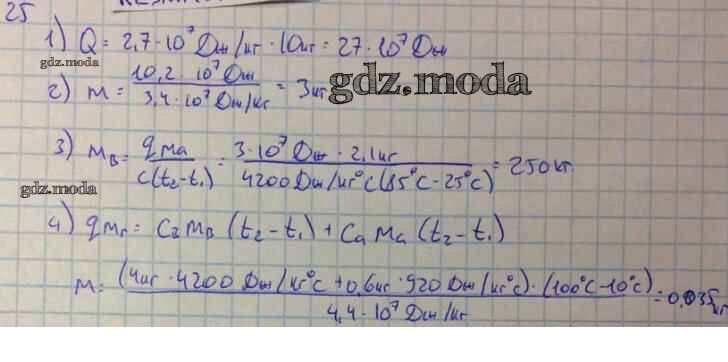 25
1) Q = 2,7·10⁷ Дж/кг · 10кг = 27·10⁷ Дж
gdz.moda
2) m = 10,2·10⁷ Дж / 3,4·10⁷ Дж/кг = 3кг
gdz.moda
3) mв = qma / c(t₂-t₁) = 3·10⁷ Дж · 2,1кг / 4200 Дж/кг°С(85°С-25°С) = 250кг.
gdz.moda
4) qmг = C₂mв(t₂-t₁) + Cama(t₂-t₁)
m = (4кг · 4200 Дж/кг°С + 0,6кг · 920 Дж/кг°С) · (100°С-10°С) / 4,4·10⁷ Дж/кг = 0,035кг